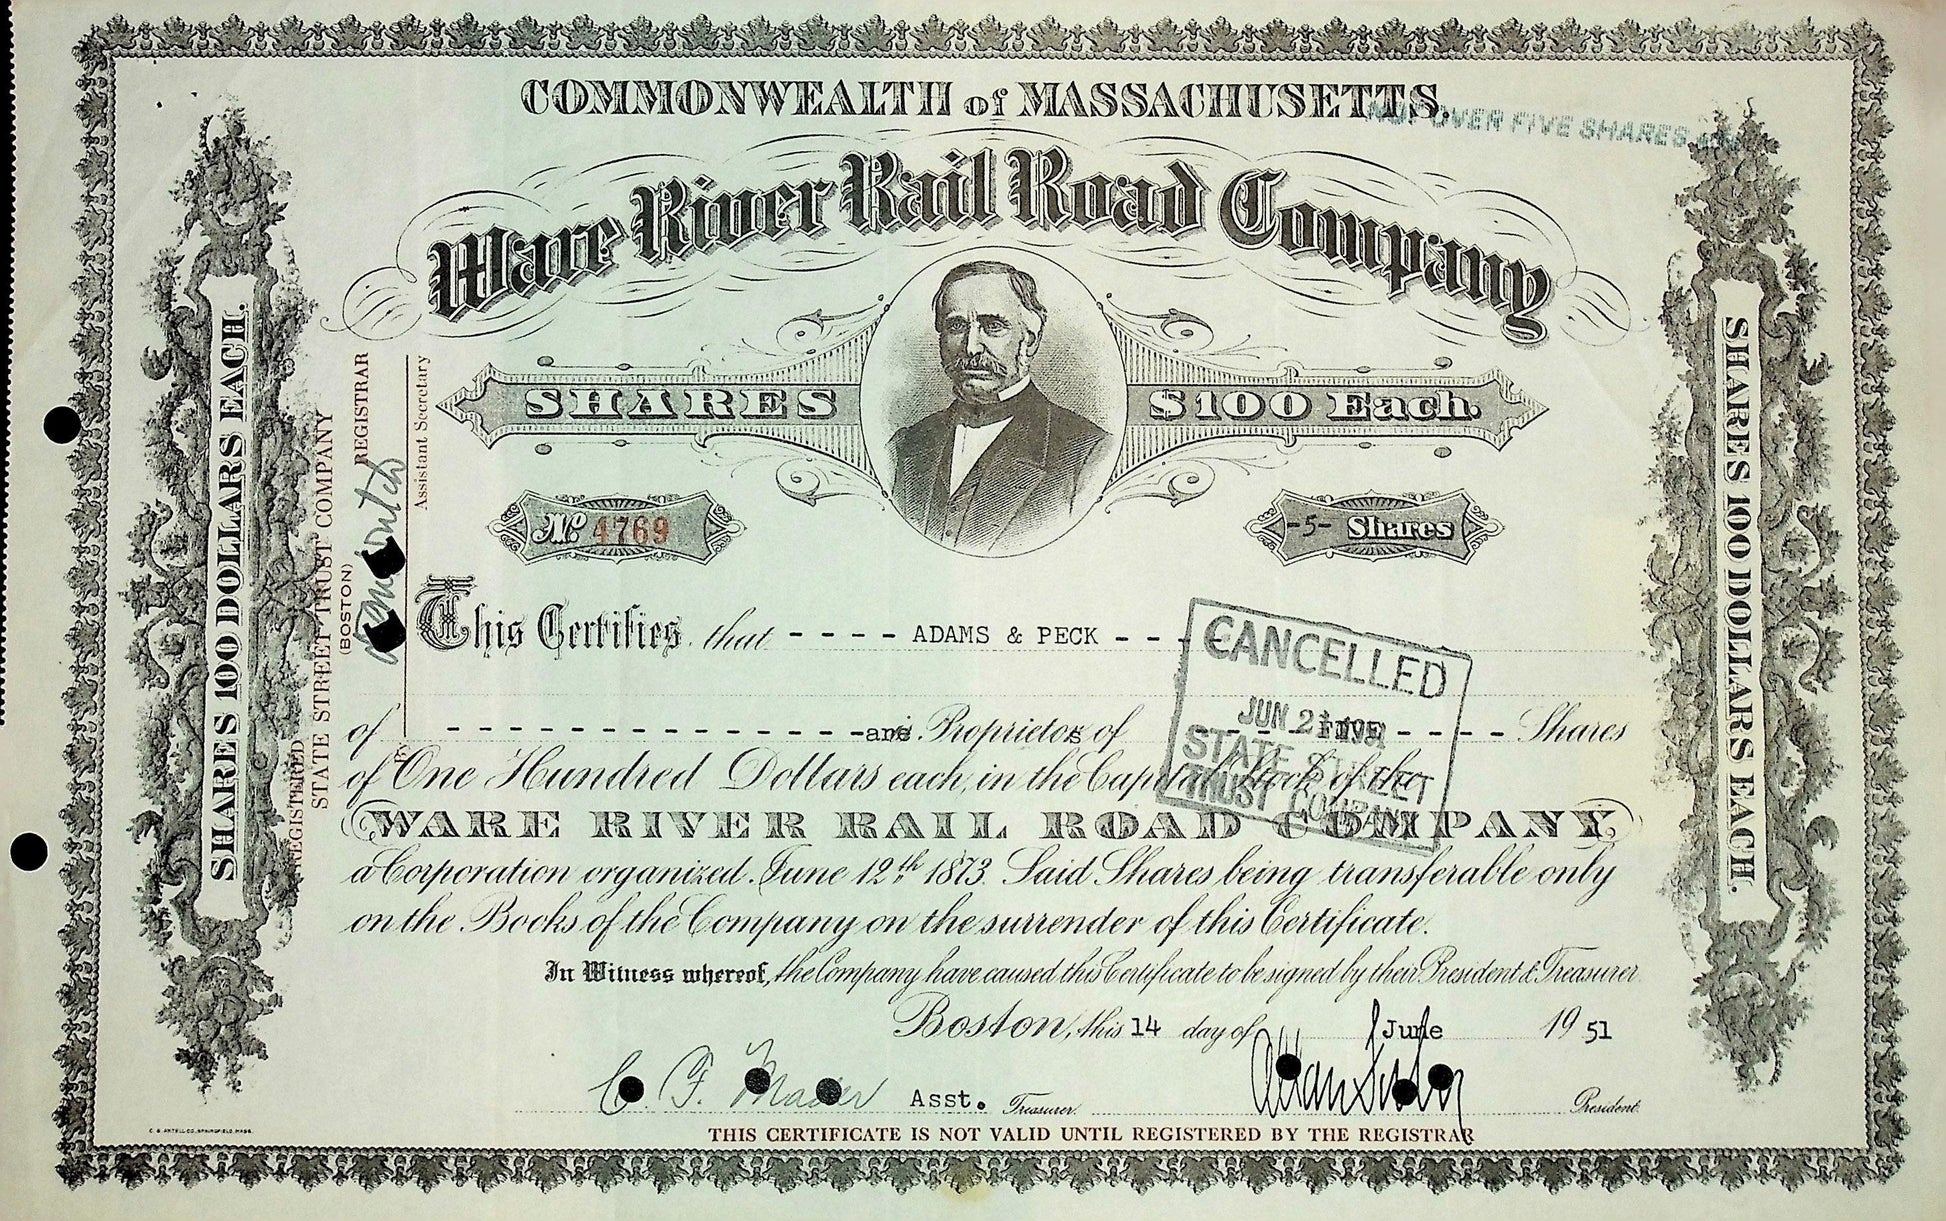 COMMONWEALTH of MASSACHUSETTS.
OVER FIVE SHARES
Ware River Rail Road Company
SHARES $100 Each.
No. 4769
-5- Shares
SHARES 100 DOLLARS EACH.
SHARES 100 DOLLARS EACH.
REGISTERED
STATE STREET TRUST COMPANY
(BOSTON)
REGISTRAR
Assistant Secretary
This Certifies that - - - - ADAMS & PECK - - - -
of - - - - - - - - - - - - - - - - are Proprietors of - - - FIVE - - - - Shares
of One Hundred Dollars each, in the Capital Stock of the
WARE RIVER RAIL ROAD COMPANY
a Corporation organized June 12th 1873. Said Shares being transferable only
on the Books of the Company on the surrender of this Certificate.
In Witness whereof, the Company have caused this Certificate to be signed by their President & Treasurer
Boston, this 14 day of June 19 51
C. F. Asst. Treasurer. President.
THIS CERTIFICATE IS NOT VALID UNTIL REGISTERED BY THE REGISTRAR
CANCELLED
JUN 21 1951
STATE STREET
TRUST COMPANY